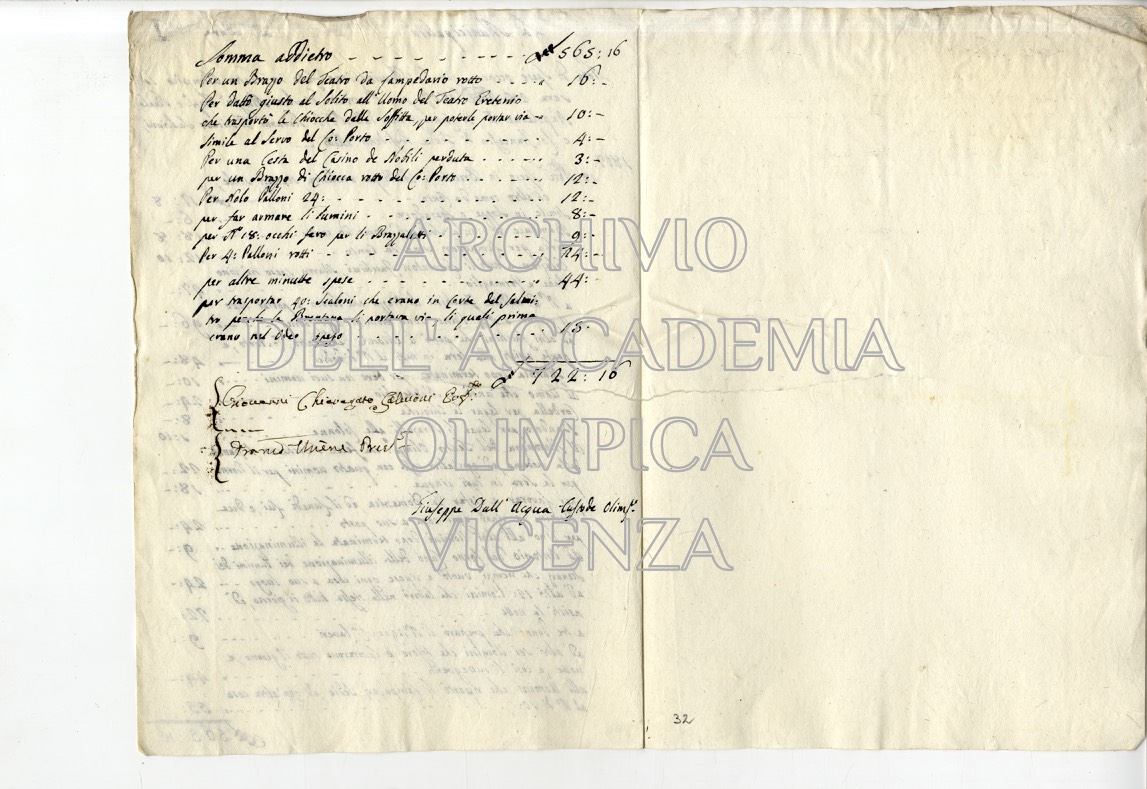 Somma addietro - - - - - - - - - - 565: 16
Per un Brazzo del Teatro da Lampedario rotto - - - - 16: -
Per datto giusto al Solito all'Uomo del Teatro Eretenio
che trasportò le Chiocche dalle Soffitta, per poterle portar via - 10: -
simile al Servo del Co: Porto - - - - - - - - 4: -
Per una Cesta del Casino de Nobili perduta - - - - - 3: -
per un Brazzo di Chiocca rotto del Co: Porto - - - - - 12: -
Per Nolo Palloni 24: - - - - - - - - - 12: -
per far armare li Lumini - - - - - - - - 8: -
per N° 18: occhi fero per li Brazzaletti - - - - - - 9: -
Per 4: Palloni rotti - - - - - - - - - 24: -
per altre minutte spese - - - - - - - - 44: -
per trasportar 40: Scaloni che erano in Corte del Salni-
tro perche la Brentana li portava via li quali prima
erano nel Odeo spezo - - - - - - - - - 15:
722: 16
Giovanni Chiavegato
Giuseppe Dall'Acqua Custode Olimp.º
32
ARCHIVIO
DELL'ACCADEMIA
OLIMPICA
VICENZA